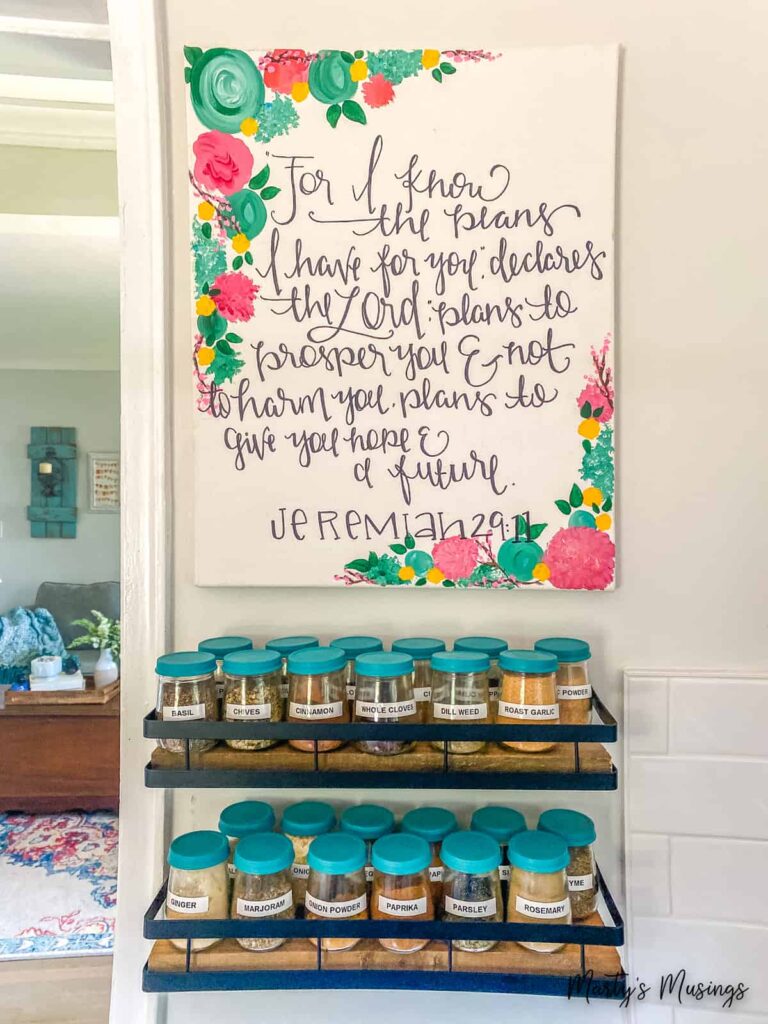 "For I know
the plans
I have for you," declares
the Lord, "plans to
prosper you & not
to harm you, plans to
give you hope &
a future.
Jeremiah 29:11
POWDER
BASIL
CHIVES
CINNAMON
WHOLE CLOVES
DILL WEED
ROAST GARLIC
GINGER
MARJORAM
ONION POWDER
PAPRIKA
PARSLEY
ROSEMARY
Marty's Musings